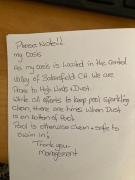 Please Note!!
my Guests
As my oasis is Located in the Central
Valley of Bakersfield CA we are
Prone to High Winds & Dust.
While all efforts to keep pool sparkling
Clean, there are times when Dust
is on Bottom of Pool.
Pool is otherwise Clean & safe to
Swim in!
Thank you
Management